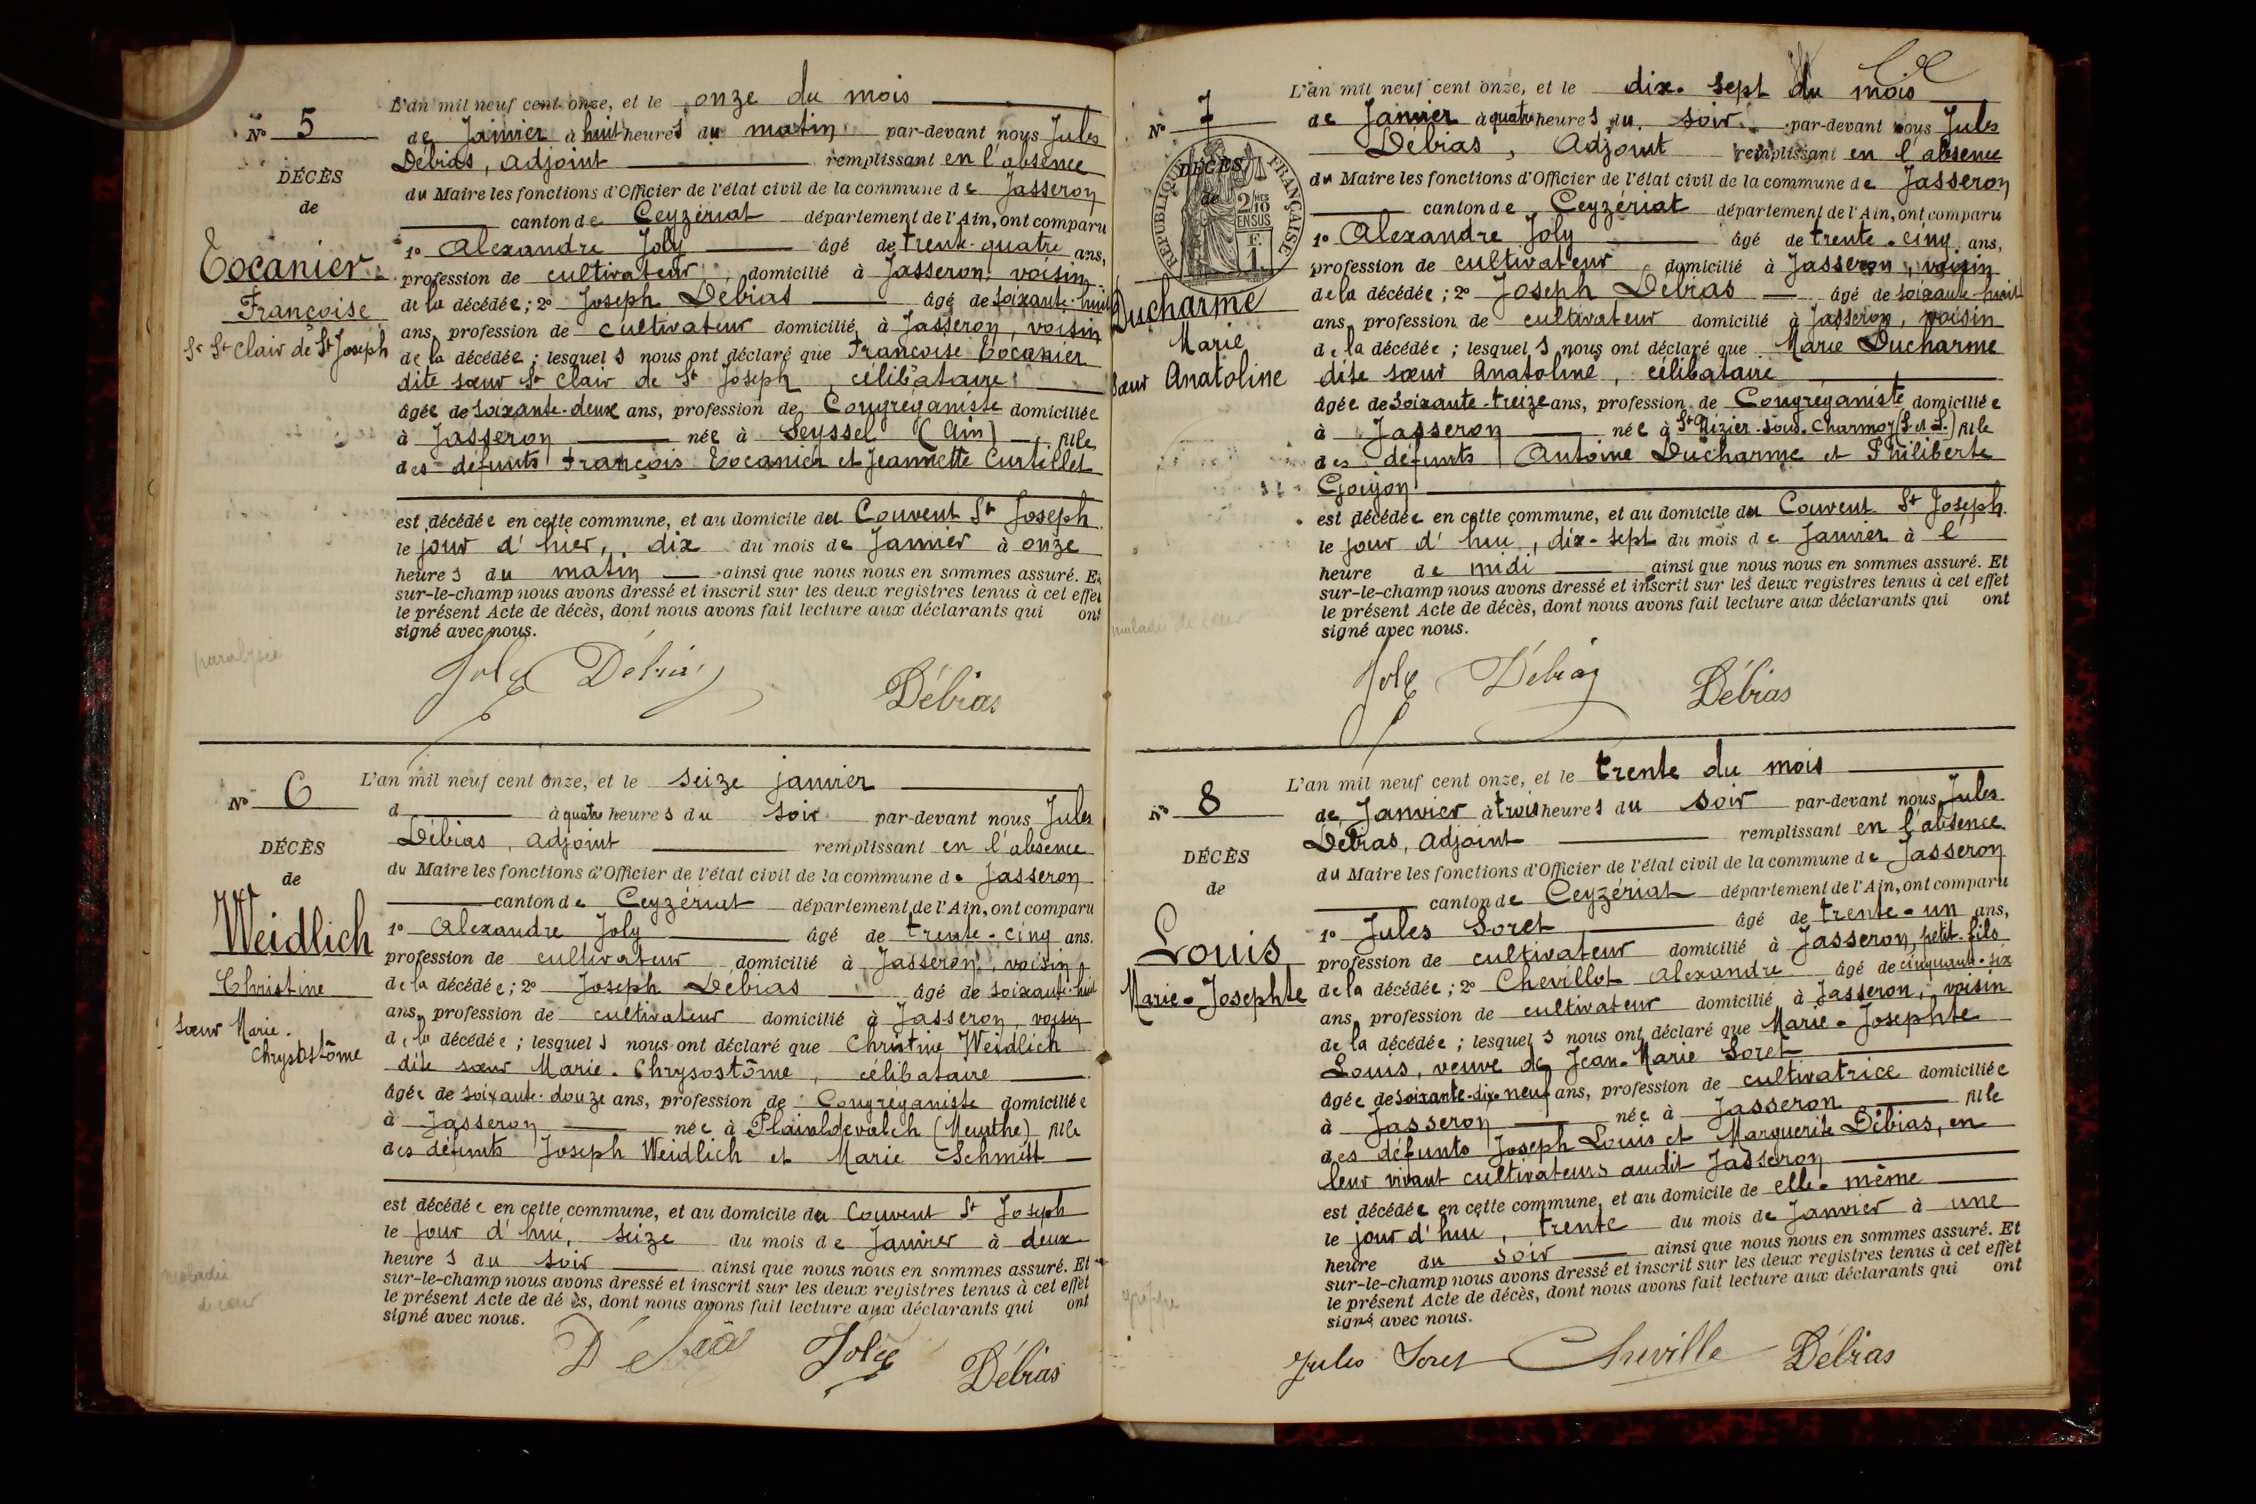 L'an mil neuf cent onze, et le onze du mois
N° 5
de Janvier à huit heures du matin par-devant nous Jules
Débias, adjoint remplissant en l'absence
DÉCÈS
du Maire les fonctions d'Officier de l'état civil de la commune de Jasseron
de
canton de Ceyzériat département de l'Ain, ont comparu
1° Alexandre Joly âgé de trente-quatre ans,
Tocanier
profession de cultivateur, domicilié à Jasseron, voisin
Françoise
de la décédée; 2° Joseph Débias âgé de soixante-huit
ans, profession de cultivateur domicilié à Jasseron, voisin
Sr St Clair de St Joseph
de la décédée; lesquels nous ont déclaré que Françoise Tocanier
dite sœur St Clair de St Joseph, célibataire
âgée de soixante-deux ans, profession de Congréganiste domiciliée
à Jasseron née à Seyssel (Ain), fille
des défunts François Tocanier et Jeannette Curtillet
est décédée en cette commune, et au domicile du Couvent St Joseph
le jour d'hier, dix du mois de Janvier à onze
heures du matin ainsi que nous nous en sommes assuré. Et
sur-le-champ nous avons dressé et inscrit sur les deux registres tenus à cet effet
le présent Acte de décès, dont nous avons fait lecture aux déclarants qui ont
signé avec nous.
paralysie
Joly Débias Débias
L'an mil neuf cent onze, et le seize janvier
N° 6
d à quatre heures du soir par-devant nous Jules
Débias, adjoint remplissant en l'absence
DÉCÈS
du Maire les fonctions d'Officier de l'état civil de la commune de Jasseron
de
canton de Ceyzériat département de l'Ain, ont comparu
1° Alexandre Joly âgé de trente-cinq ans.
Weidlich
profession de cultivateur domicilié à Jasseron, voisin
Christine
de la décédée; 2° Joseph Débias âgé de soixante-huit
ans, profession de cultivateur domicilié à Jasseron, voisin
Sœur Marie-
de la décédée; lesquels nous ont déclaré que Christine Weidlich
Chrysostôme
dite sœur Marie-Chrysostôme, célibataire
âgée de soixante-douze ans, profession de Congréganiste domiciliée
à Jasseron née à Plainldevalch (Meurthe) fille
des défunts Joseph Weidlich et Marie Schmitt
est décédée en cette commune, et au domicile du Couvent St Joseph
le jour d'hui, seize du mois de Janvier à deux
heures du soir ainsi que nous nous en sommes assuré. Et
maladie
sur-le-champ nous avons dressé et inscrit sur les deux registres tenus à cet effet
de cœur
le présent Acte de dé ès, dont nous avons fait lecture aux déclarants qui ont
signé avec nous.
Débias Joly Débias
L'an mil neuf cent onze, et le dix-sept du mois
N° 7
de Janvier à quatre heures du soir par-devant nous Jules
Débias, Adjoint remplissant en l'absence
DÉCÈS
de
RÉPUBLIQUE FRANÇAISE
2/10 EN SUS
F. 1.
du Maire les fonctions d'Officier de l'état civil de la commune de Jasseron
canton de Ceyzériat département de l'Ain, ont comparu
1° Alexandre Joly âgé de trente-cinq ans,
profession de cultivateur domicilié à Jasseron, voisin
Ducharme
de la décédée; 2° Joseph Débias âgé de soixante-huit
ans, profession de cultivateur domicilié à Jasseron, voisin
Marie
de la décédée; lesquels nous ont déclaré que Marie Ducharme
Sœur Anatoline
dite sœur Anatoline, célibataire
âgée de soixante-treize ans, profession de Congréganiste domiciliée
à Jasseron née à St Nizier-sous-Charmoy (S. et L.) fille
des défunts Antoine Ducharme et Philiberte
Goujon
est décédée en cette commune, et au domicile du Couvent St Joseph
le jour d'hui, dix-sept du mois de Janvier à l'
heure de midi ainsi que nous nous en sommes assuré. Et
sur-le-champ nous avons dressé et inscrit sur les deux registres tenus à cet effet
le présent Acte de décès, dont nous avons fait lecture aux déclarants qui ont
maladie de cœur
signé avec nous.
Joly Débias Débias
L'an mil neuf cent onze, et le trente du mois
N° 8
de Janvier à trois heures du soir par-devant nous Jules
Débias, adjoint remplissant en l'absence
DÉCÈS
du Maire les fonctions d'Officier de l'état civil de la commune de Jasseron
de
canton de Ceyzériat département de l'Ain, ont comparu
1° Jules Soret âgé de trente-un ans,
Louis
profession de cultivateur domicilié à Jasseron, petit-fils
Marie-Josephte
de la décédée; 2° Chevillot Alexandre âgé de cinquante-six
ans, profession de cultivateur domicilié à Jasseron, voisin
de la décédée; lesquels nous ont déclaré que Marie-Josephte
Louis, veuve de Jean-Marie Soret
âgée de soixante-dix-neuf ans, profession de cultivatrice domiciliée
à Jasseron née à Jasseron fille
des défunts Joseph Louis et Marguerite Débias, en
leur vivant cultivateurs audit Jasseron
est décédée en cette commune, et au domicile de elle-même
le jour d'hui, trente du mois de Janvier à une
heure du soir ainsi que nous nous en sommes assuré. Et
sur-le-champ nous avons dressé et inscrit sur les deux registres tenus à cet effet
le présent Acte de décès, dont nous avons fait lecture aux déclarants qui ont
signé avec nous.
Jules Soret Cheville Débias